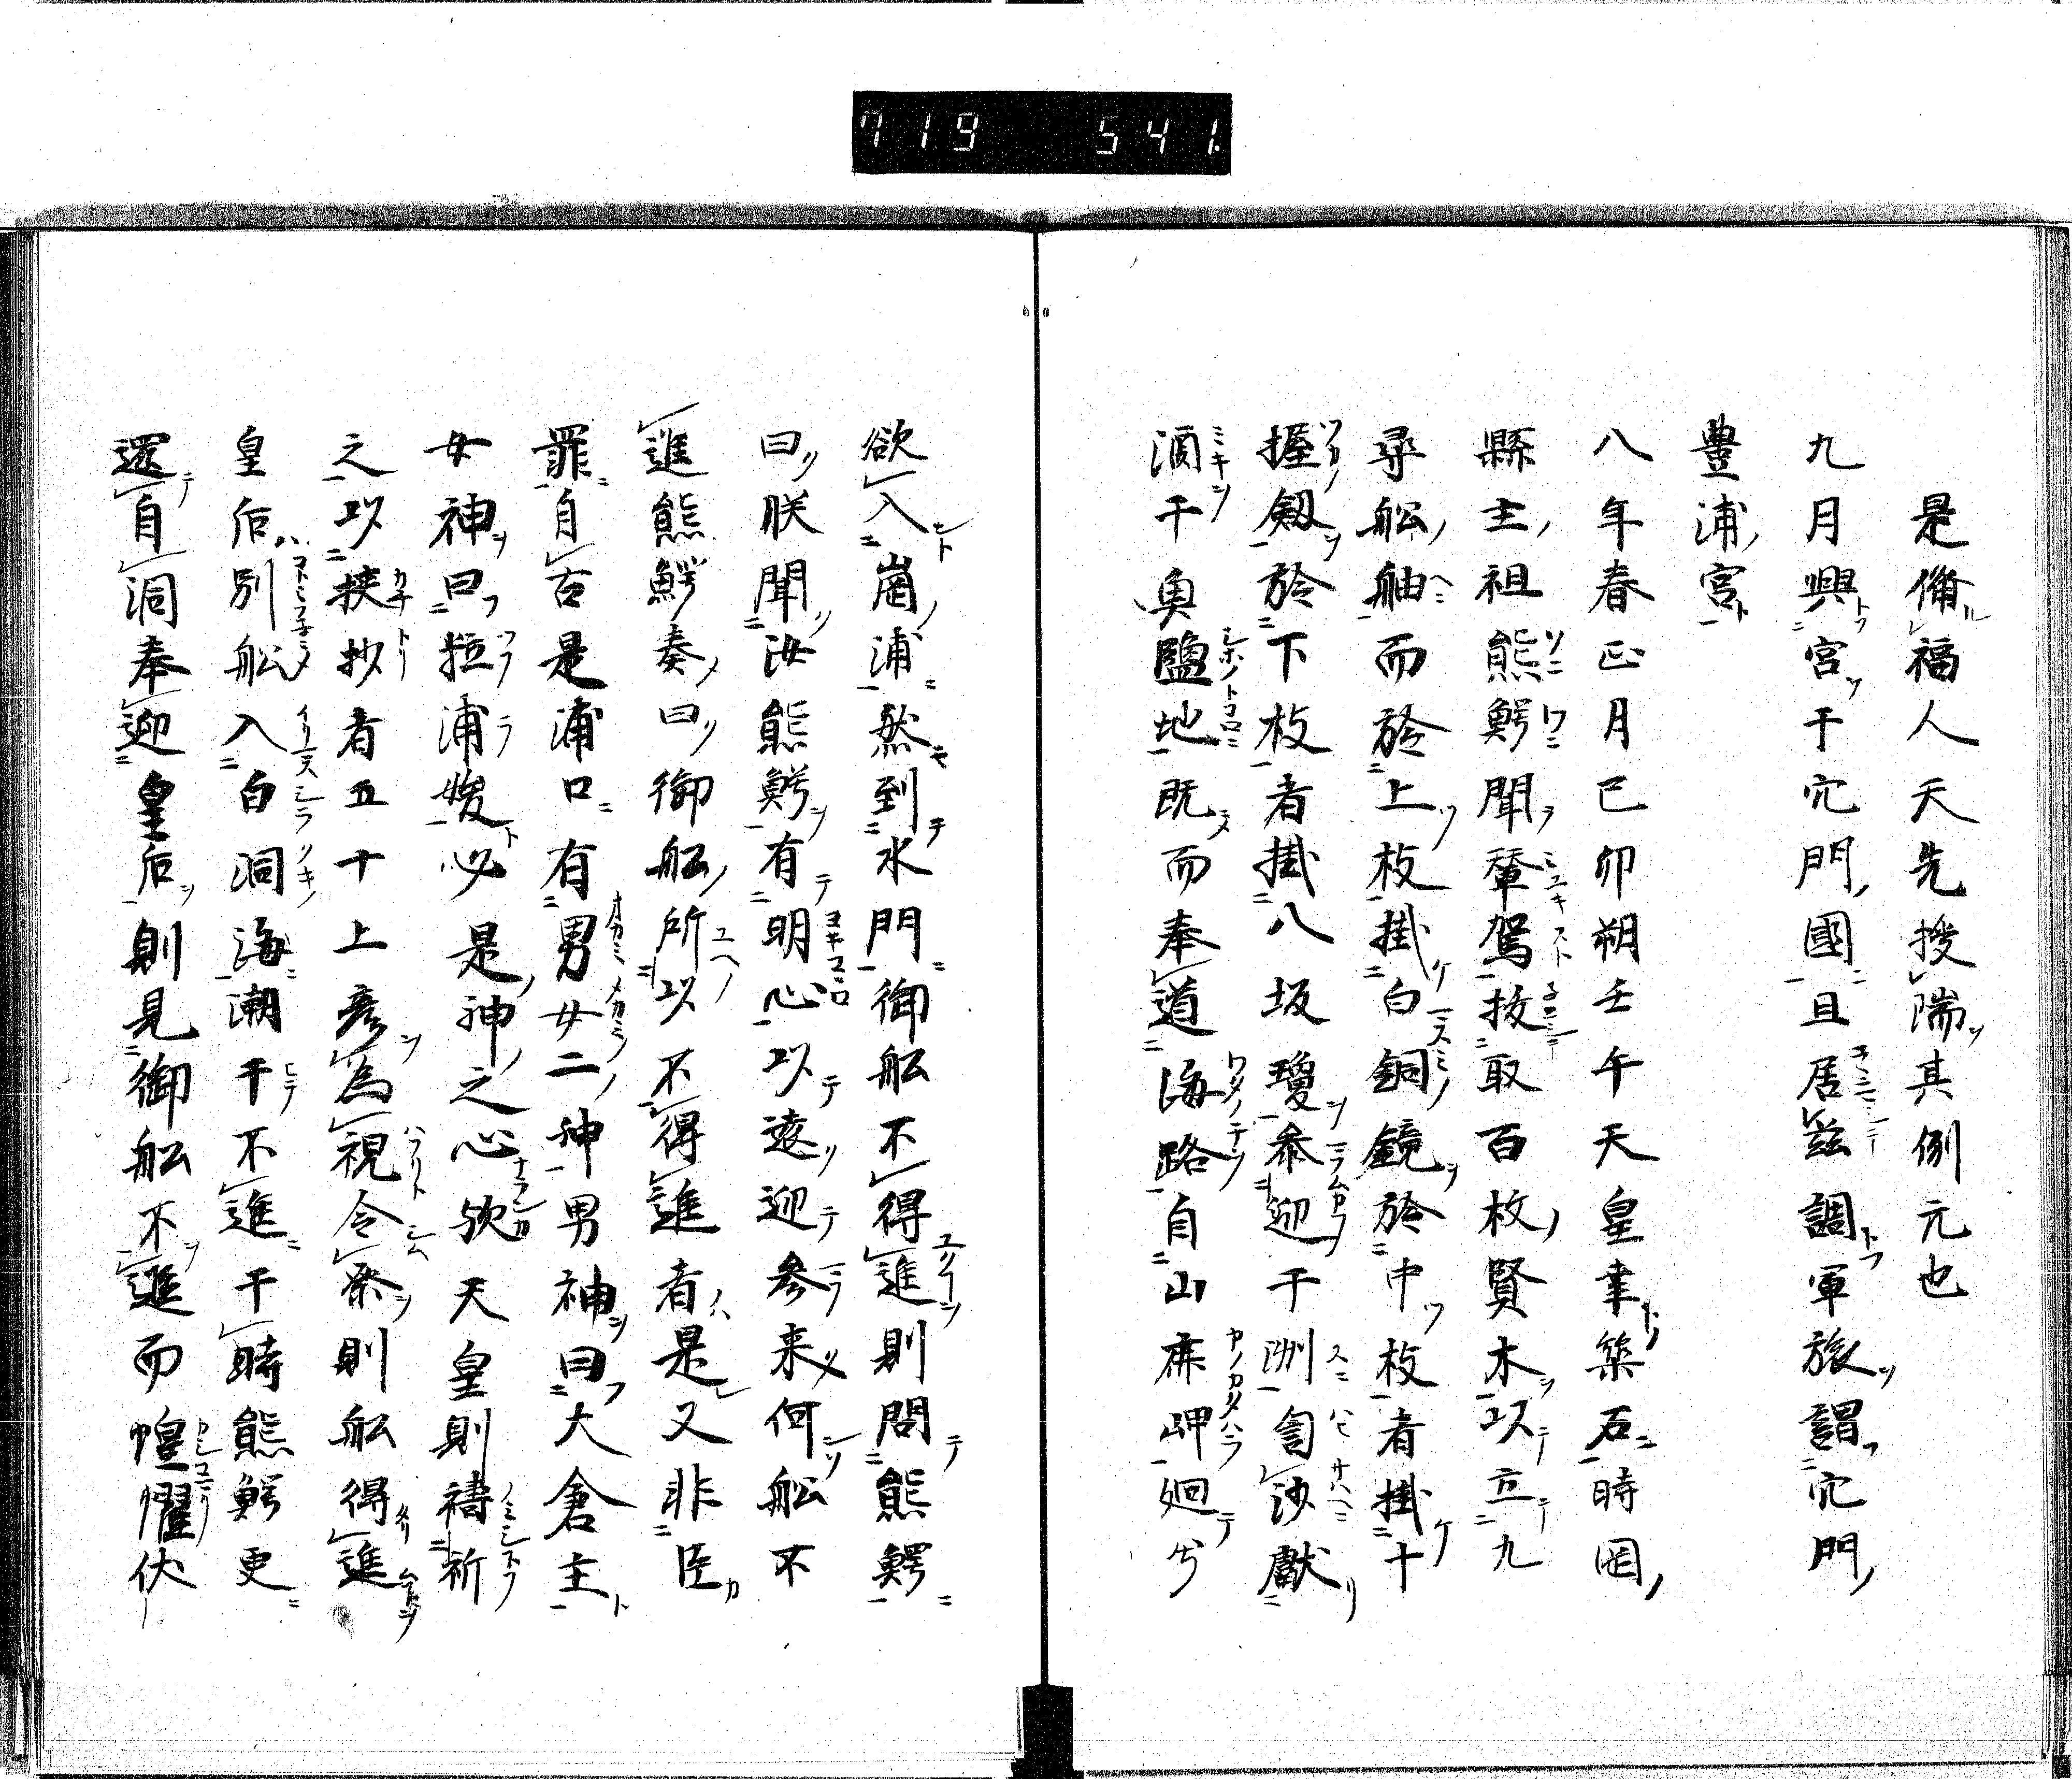 719 541.
是備福人天先授隔其例元也
九月興宮于穴門國且居玆調軍旅謂穴門
豊浦宮
八年春正月己卯朔壬午天皇幸築石時囹
縣主祖熊鰐聞輦駕拔取百枚賢木以立九
尋舩舳而於上枚掛白銅鏡於中枚者掛十
握劔於下枚者掛八坂瓊叅迎于洲訇沙獻
酒于奥鹽地既而奉道海路自山麻岬廻兮
欲入崗浦然到水門御舩不得進則問熊鰐
曰朕聞汝熊鰐有明心以遠迎參来何舩不
進熊鰐奏曰御舩所以不得進者是又非臣
罪自古是浦口有男女二神男神曰大倉主
女神曰粒浦媛必是神之心欤天皇則禱祈
之以挾抄者五十上彦為視令祭則舩得進
皇后別舩入自洞海潮干不進于時熊鰐更
還自洞奉迎皇后則見御舩不進而惶懼伏